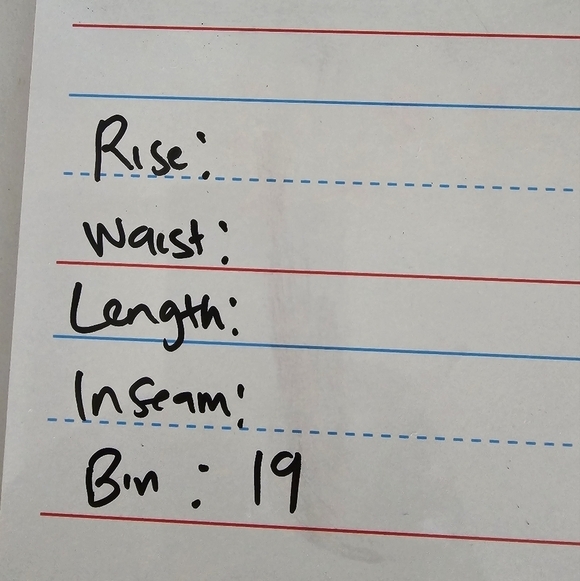 Rise:
Waist:
Length:
Inseam:
Bin: 19